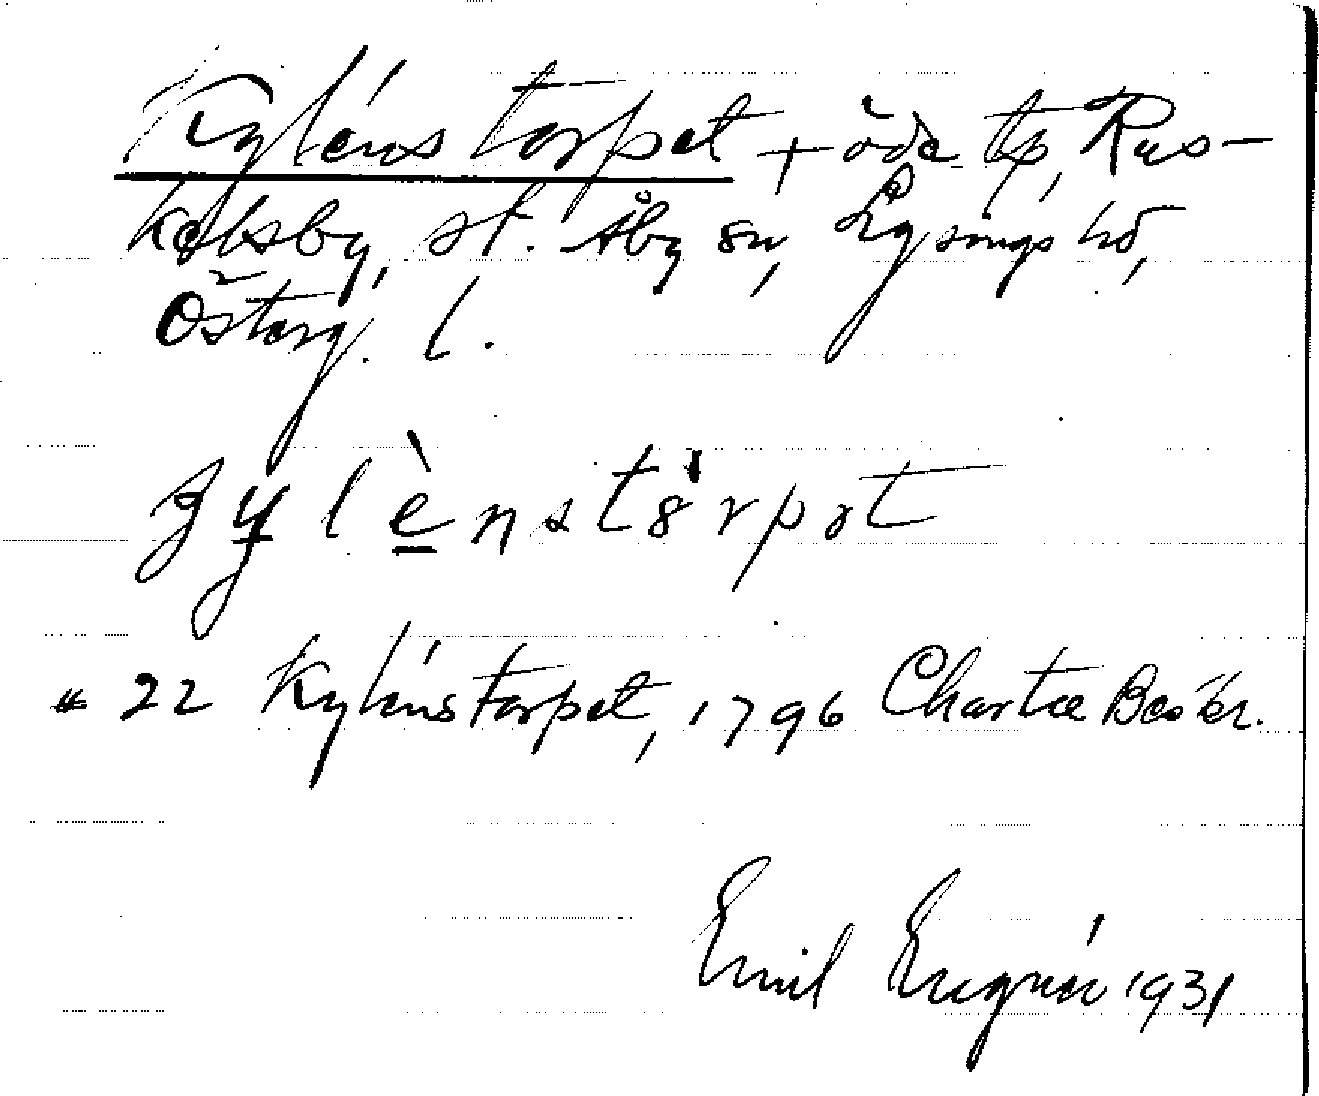 Kyléns torpet + öde tp, Rus-
kelsby, st. Åby sn, Lysings hd,
Österg. l.
gylènstòrpət
" 22 Kylénstorpet, 1796 Chartæ Beskr.
Emil 1931